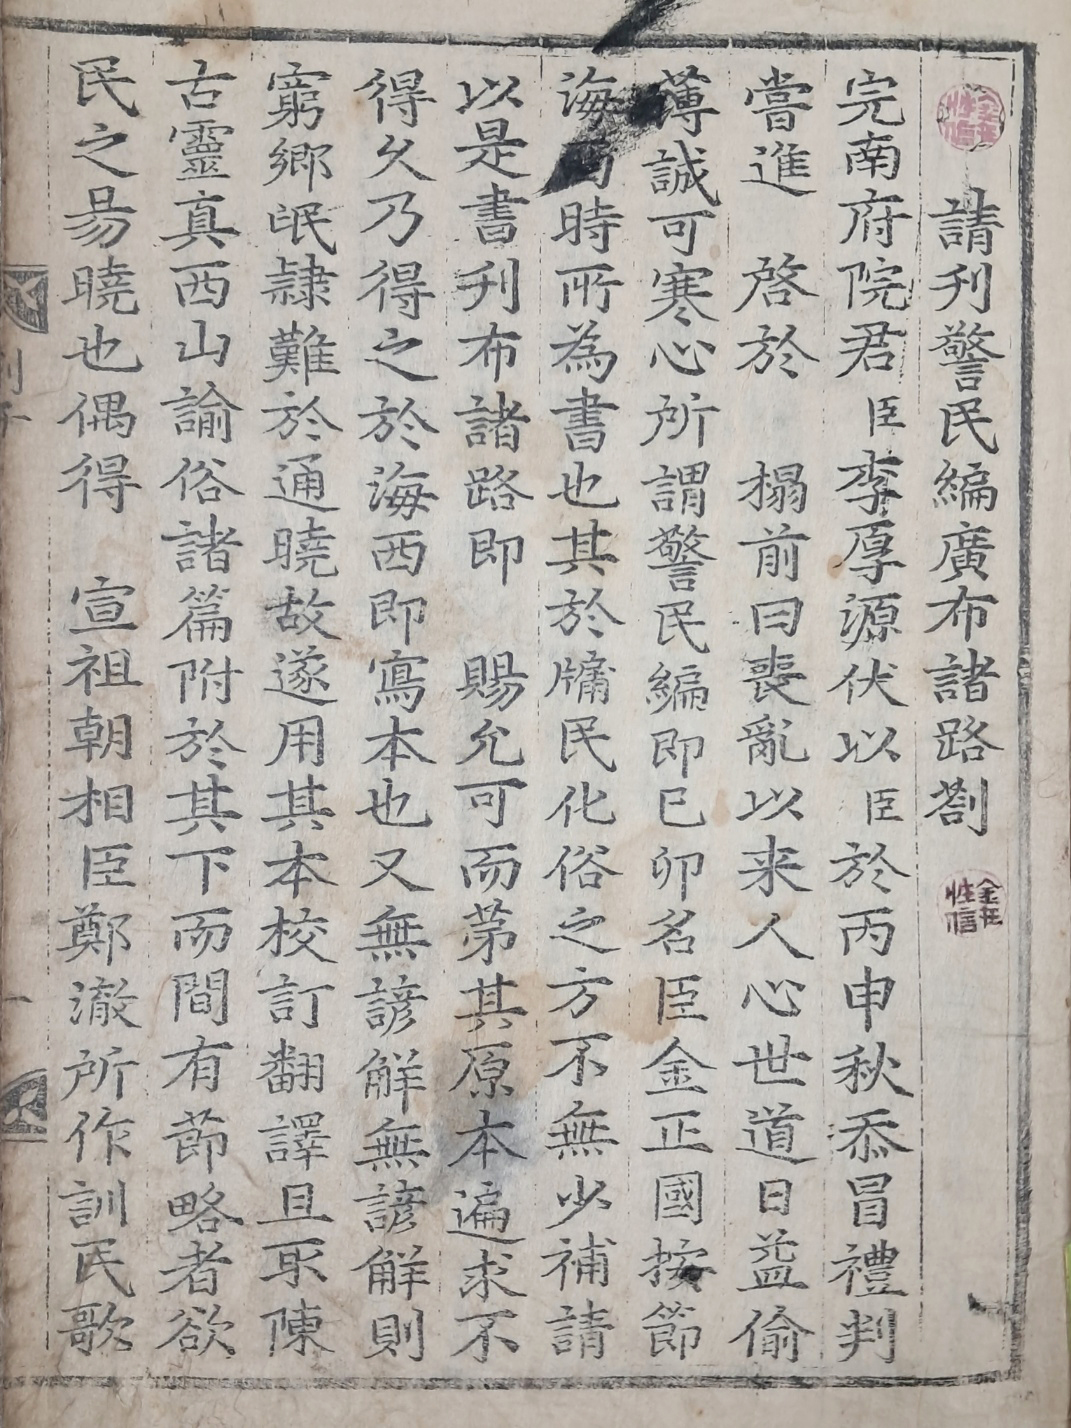 請刋警民編廣布諸路劄
完南府院君臣李厚源伏以臣於丙申秋忝冒禮判
嘗進 啓於 榻前曰喪亂以来人心世道日益偷
薄誠可寒心所謂警民編即已卯名臣金正國按節
海西時所為書也其於牖民化俗之方不無少補請
以是書刋布諸路即 賜允可而苐其原本遍求不
得久乃得之於海西即寫本也又無諺觧無諺觧則
窮鄉氓隷難於通曉故遂用其本校訂翻譯且取陳
古靈真西山諭俗諸篇附於其下而間有莭略者欲
民之昜曉也偶得 宣祖朝相臣鄭澈所作訓民歌